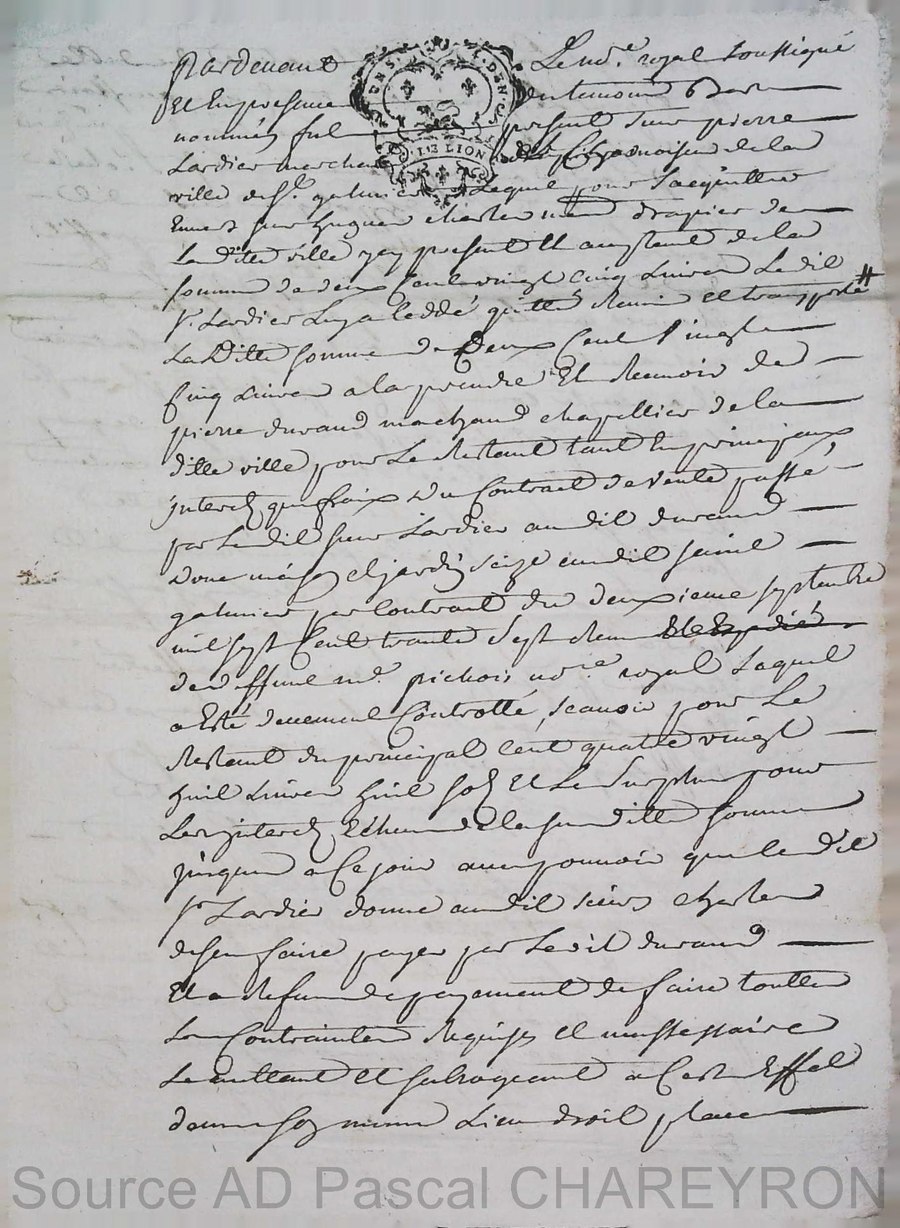 Pardevant Le no.re royal soussigné
Et En presence des temoins Bas
nommés fut present sieur pierre
Lardier marchand
ville de St. galmier Lequel pour s'acquitter
Envers sieur hugues charles md. drapier de
La ditte ville y present Et acceptant de la
somme de deux Cent vingt Cinq Livres Ledit
Sr. Lardier Luy a Ceddé quitté Remis et transporté #
La Ditte somme de Deux Cent Vingt
Cinq Livres a la prendre Et Recevoir de
pierre durand marchand chapellier de la
ditte ville pour Le Restant tant En principaux
jnterets que fraix Du Contract de vente passé
par Ledit sieur Lardier audit durand
D'une maison et jardin size audit saint
galmier par Contract du deuxieme septembre
mil sept Cent trante sept Receu
deffunt me. pichois no.re royal Laquel
a Esté deuement Controllé, scavoir pour Le
Restant du principal Cent quatre vingt
huit Livres huit sols Et Le surplus pour
Les jnterets Echeus de la susditte somme
jusques a Ce jour avec pouvoir que le dit
Sr. Lardier donne audit sieur charles
de s'en faire payer par Le dit durand
Et a Refus de payement de faire touttes
Les Contraintes Requises et nessessaire
Le mettant et subrogeant a Cest Effet
dans son mesme Lieu droit place
DE LION
Source AD Pascal CHAREYRON